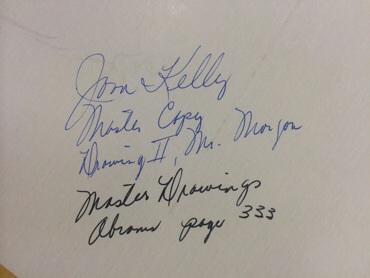 Jon Kelly
Master Copy
Drawing II, Mr. Morgan
Master Drawings
Abrams page 333